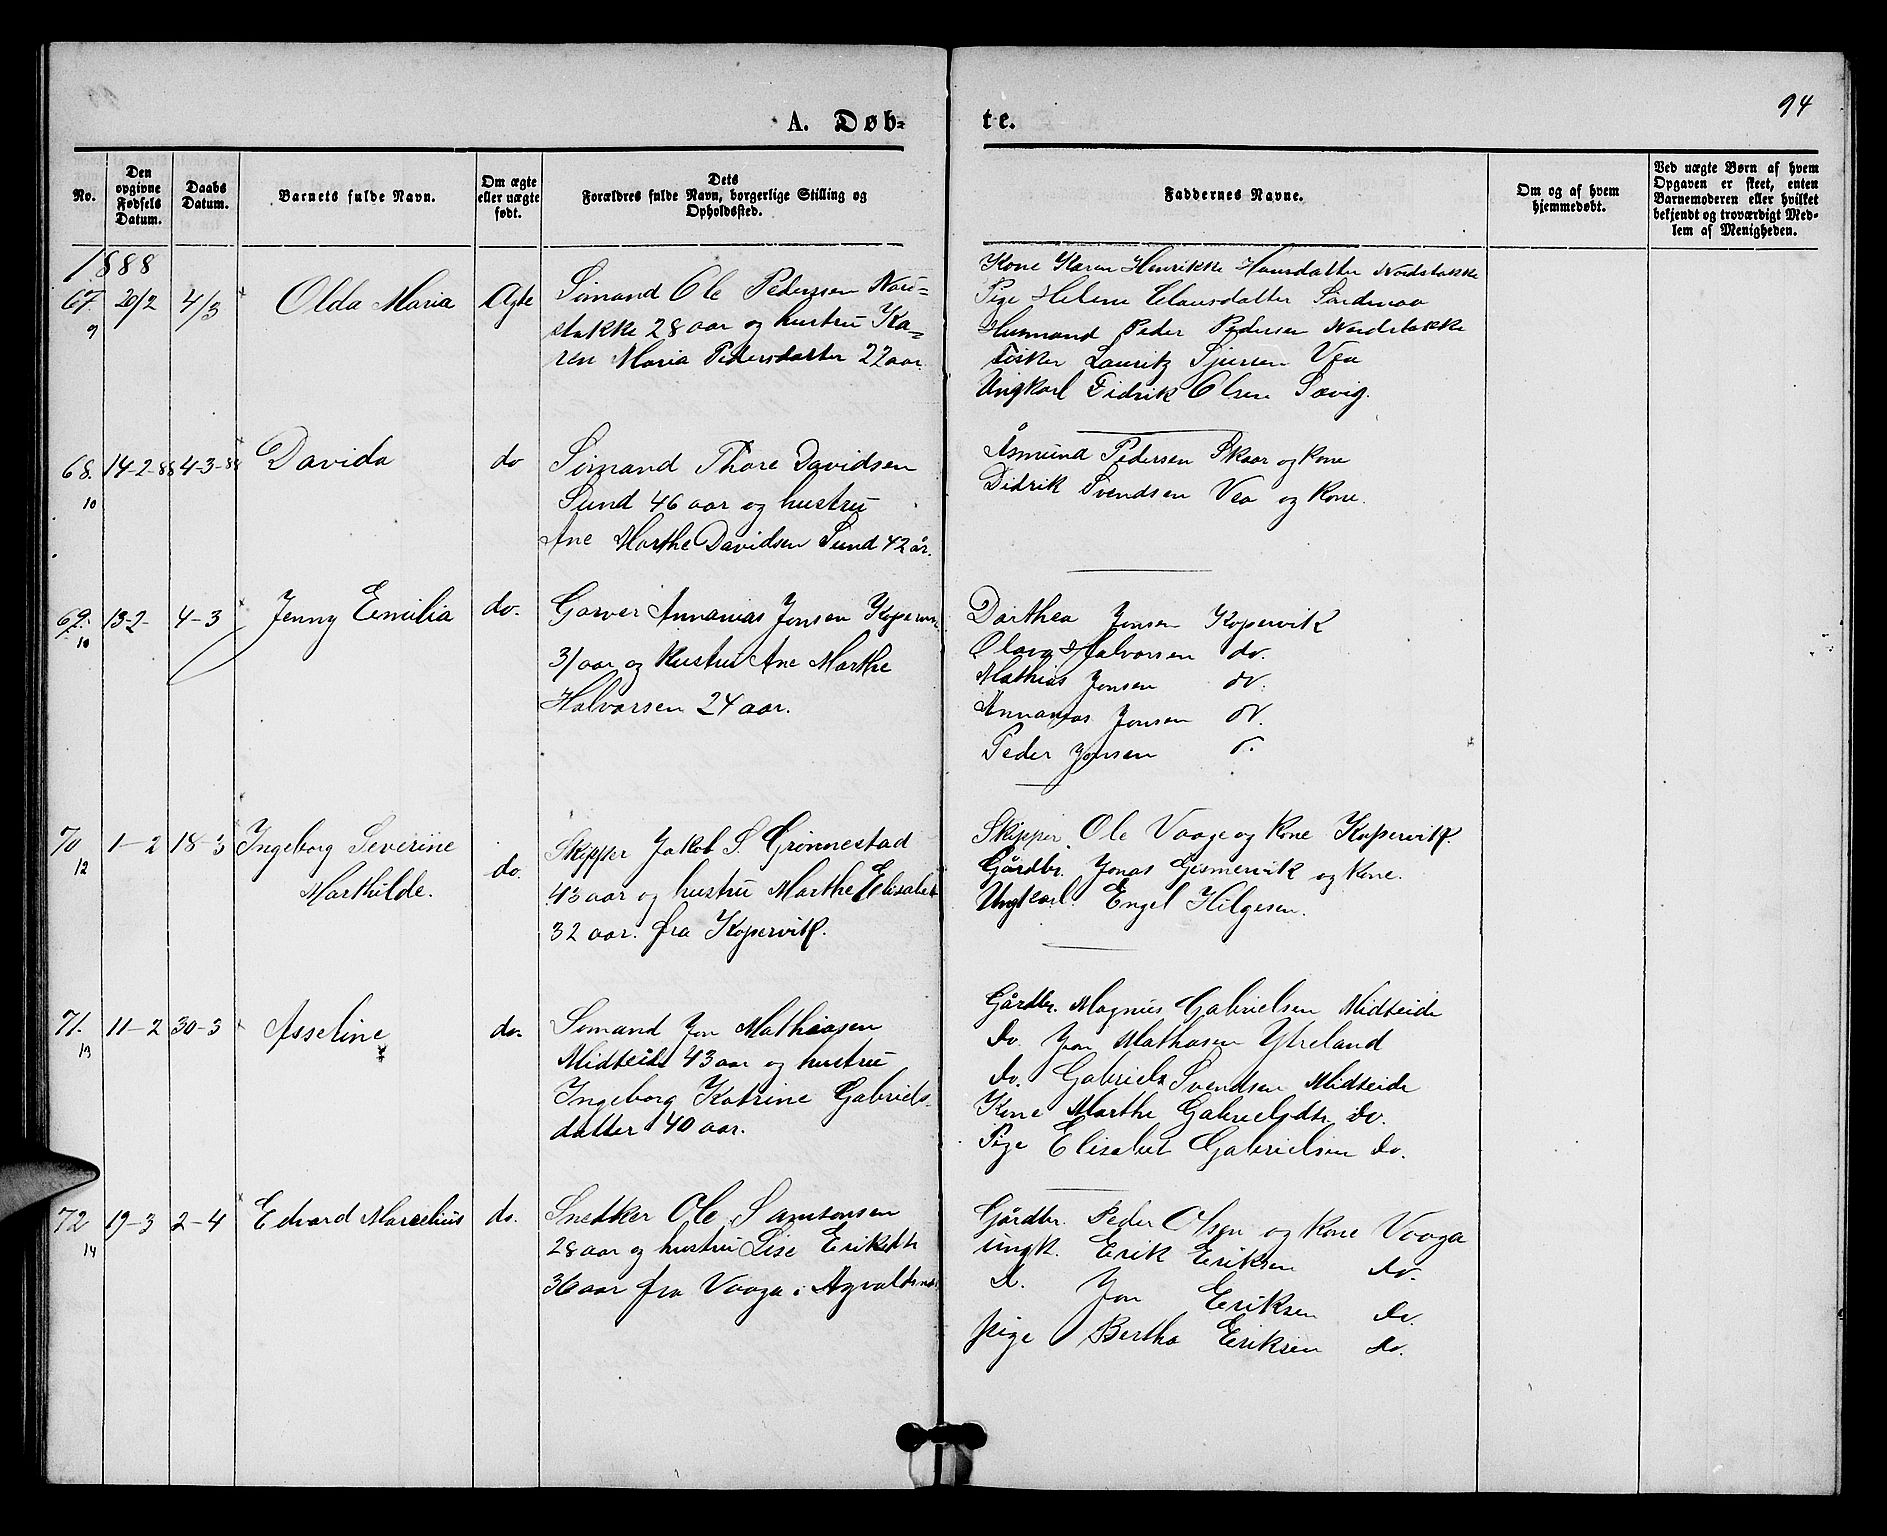 94
A. Døb-
te.
No.
Den opgivne Fødsels Datum.
Daabs Datum.
Barnets fulde Navn.
Om ægte eller uægte født.
Dets Forældres fulde Navn, borgerlige Stilling og Opholdssted.
Faddernes Navne.
Om og af hvem hjemmedøbt.
Ved uægte Børn af hvem Opgaven er skeet, enten Barnemoderen eller hvilket bekjendt og troværdigt Medlem af Menigheden.
1888
67. 20/2 4/3 Olda Maria Ægte
9
Sømand Ole Pedersen Nord=
stokke 28 aar og hustru Ka=
ren Maria Pedersdatter 22 aar.
Kone Karen Henrikke Hansdatter Nordstokke
Pige Helene Clausdatter Sordmoa
Husmand Peder Pedersen Nordstokke
Fisker Lauritz Sjursen Vea
Ungkarl Fidrik Olsen Sævig.
68. 14-2-88 4-3-88 Davida do
10
Sømand Thore Davidsen
Sund 46 aar og hustru
Ane Marthe Davidsen Sund 42 år.
Åsmund Pedersen Skaar og kone
Didrik Svendsen Vea og Kone.
69. 13-2- 4-3 Jenny Emilia do.
10
Garver Annanias Jonsen Kopervik
31 aar og Hustru Ane Marthe
Halvorsen 24 aar.
Dorthea Jonsen Kopervik
Olava Halvorsen do.
Mathias Jonsen do.
Annanias Jonsen do.
Peder Jonsen d.
70 1-2 18-3 Ingeborg Severine
12
Marthilde. do.
Skipper Jakob S. Grønnestad
43 aar og hustru Marthe Elisabet
32 aar. fra Kopervik.
Skipper Ole Vaage og Kone Kopervik.
Gårdbr. Jonas Gismervik og Kone.
Ungkarl. Engel Hilgesen.
71. 11-2 30-3 Asseline do.
13
Sømand Jon Mathiasen
Midteide 43 aar og hustru
Ingeborg Katrine Gabriels-
datter 40 aar.
Gårdbr. Magnus Gabrielsen Midteide
do. Jon Mathasen Ytreland
do. Gabriel Svendsen Midteide
Kone Marthe Gabrielsdtr do.
Pige Elisabet Gabrielsen do.
72 19-3 2-4 Edvard Marcelius do.
14
Snedker Ole Samsonsen
28 aar og hustru Lise Eriksdtr
36 aar fra Vaaga i Agvaldsnes
Gårdbr. Peder Olsen og Kone Vaaga
ungk. Erik Eriksen do.
d. Jon Eriksen do.
pige Bertha Eriksen do.